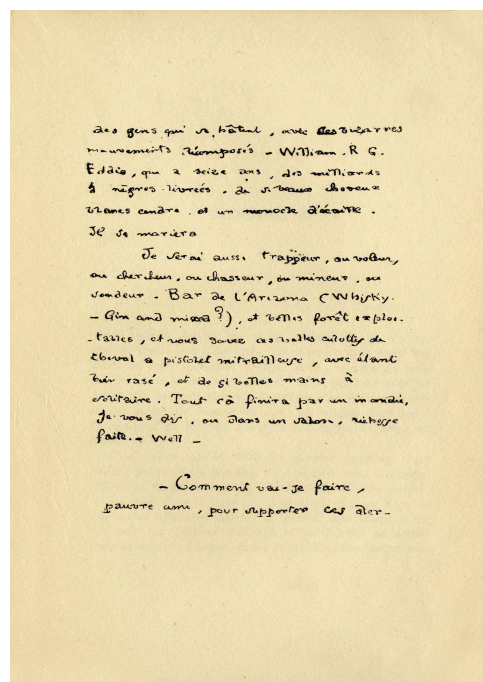 des gens qui se hâtent, avec des bizarres
mouvements décomposés – William R. G.
Eddie, qui a seize ans, des milliards
5 nègres livrées, de si beaux cheveux
blancs cendre, et un monocle d'écaille.
Il se mariera
Je serai aussi trappeur, ou voleur,
ou chercheur, ou chasseur, ou mineur, ou
sondeur – Bar de l'Arizona (Whisky.
– Gin and mixed ?), et belles forêt exploi-
-tables, et vous savez ces belles culottes de
cheval à pistolet mitrailleuse, avec étant
bien rasé, et de si belles mains à
solitaire. Tout ça finira par un incendie,
je vous dis, ou dans un salon, richesse
faite. – Well –
– Comment vais-je faire,
pauvre ami, pour supporter ces der-